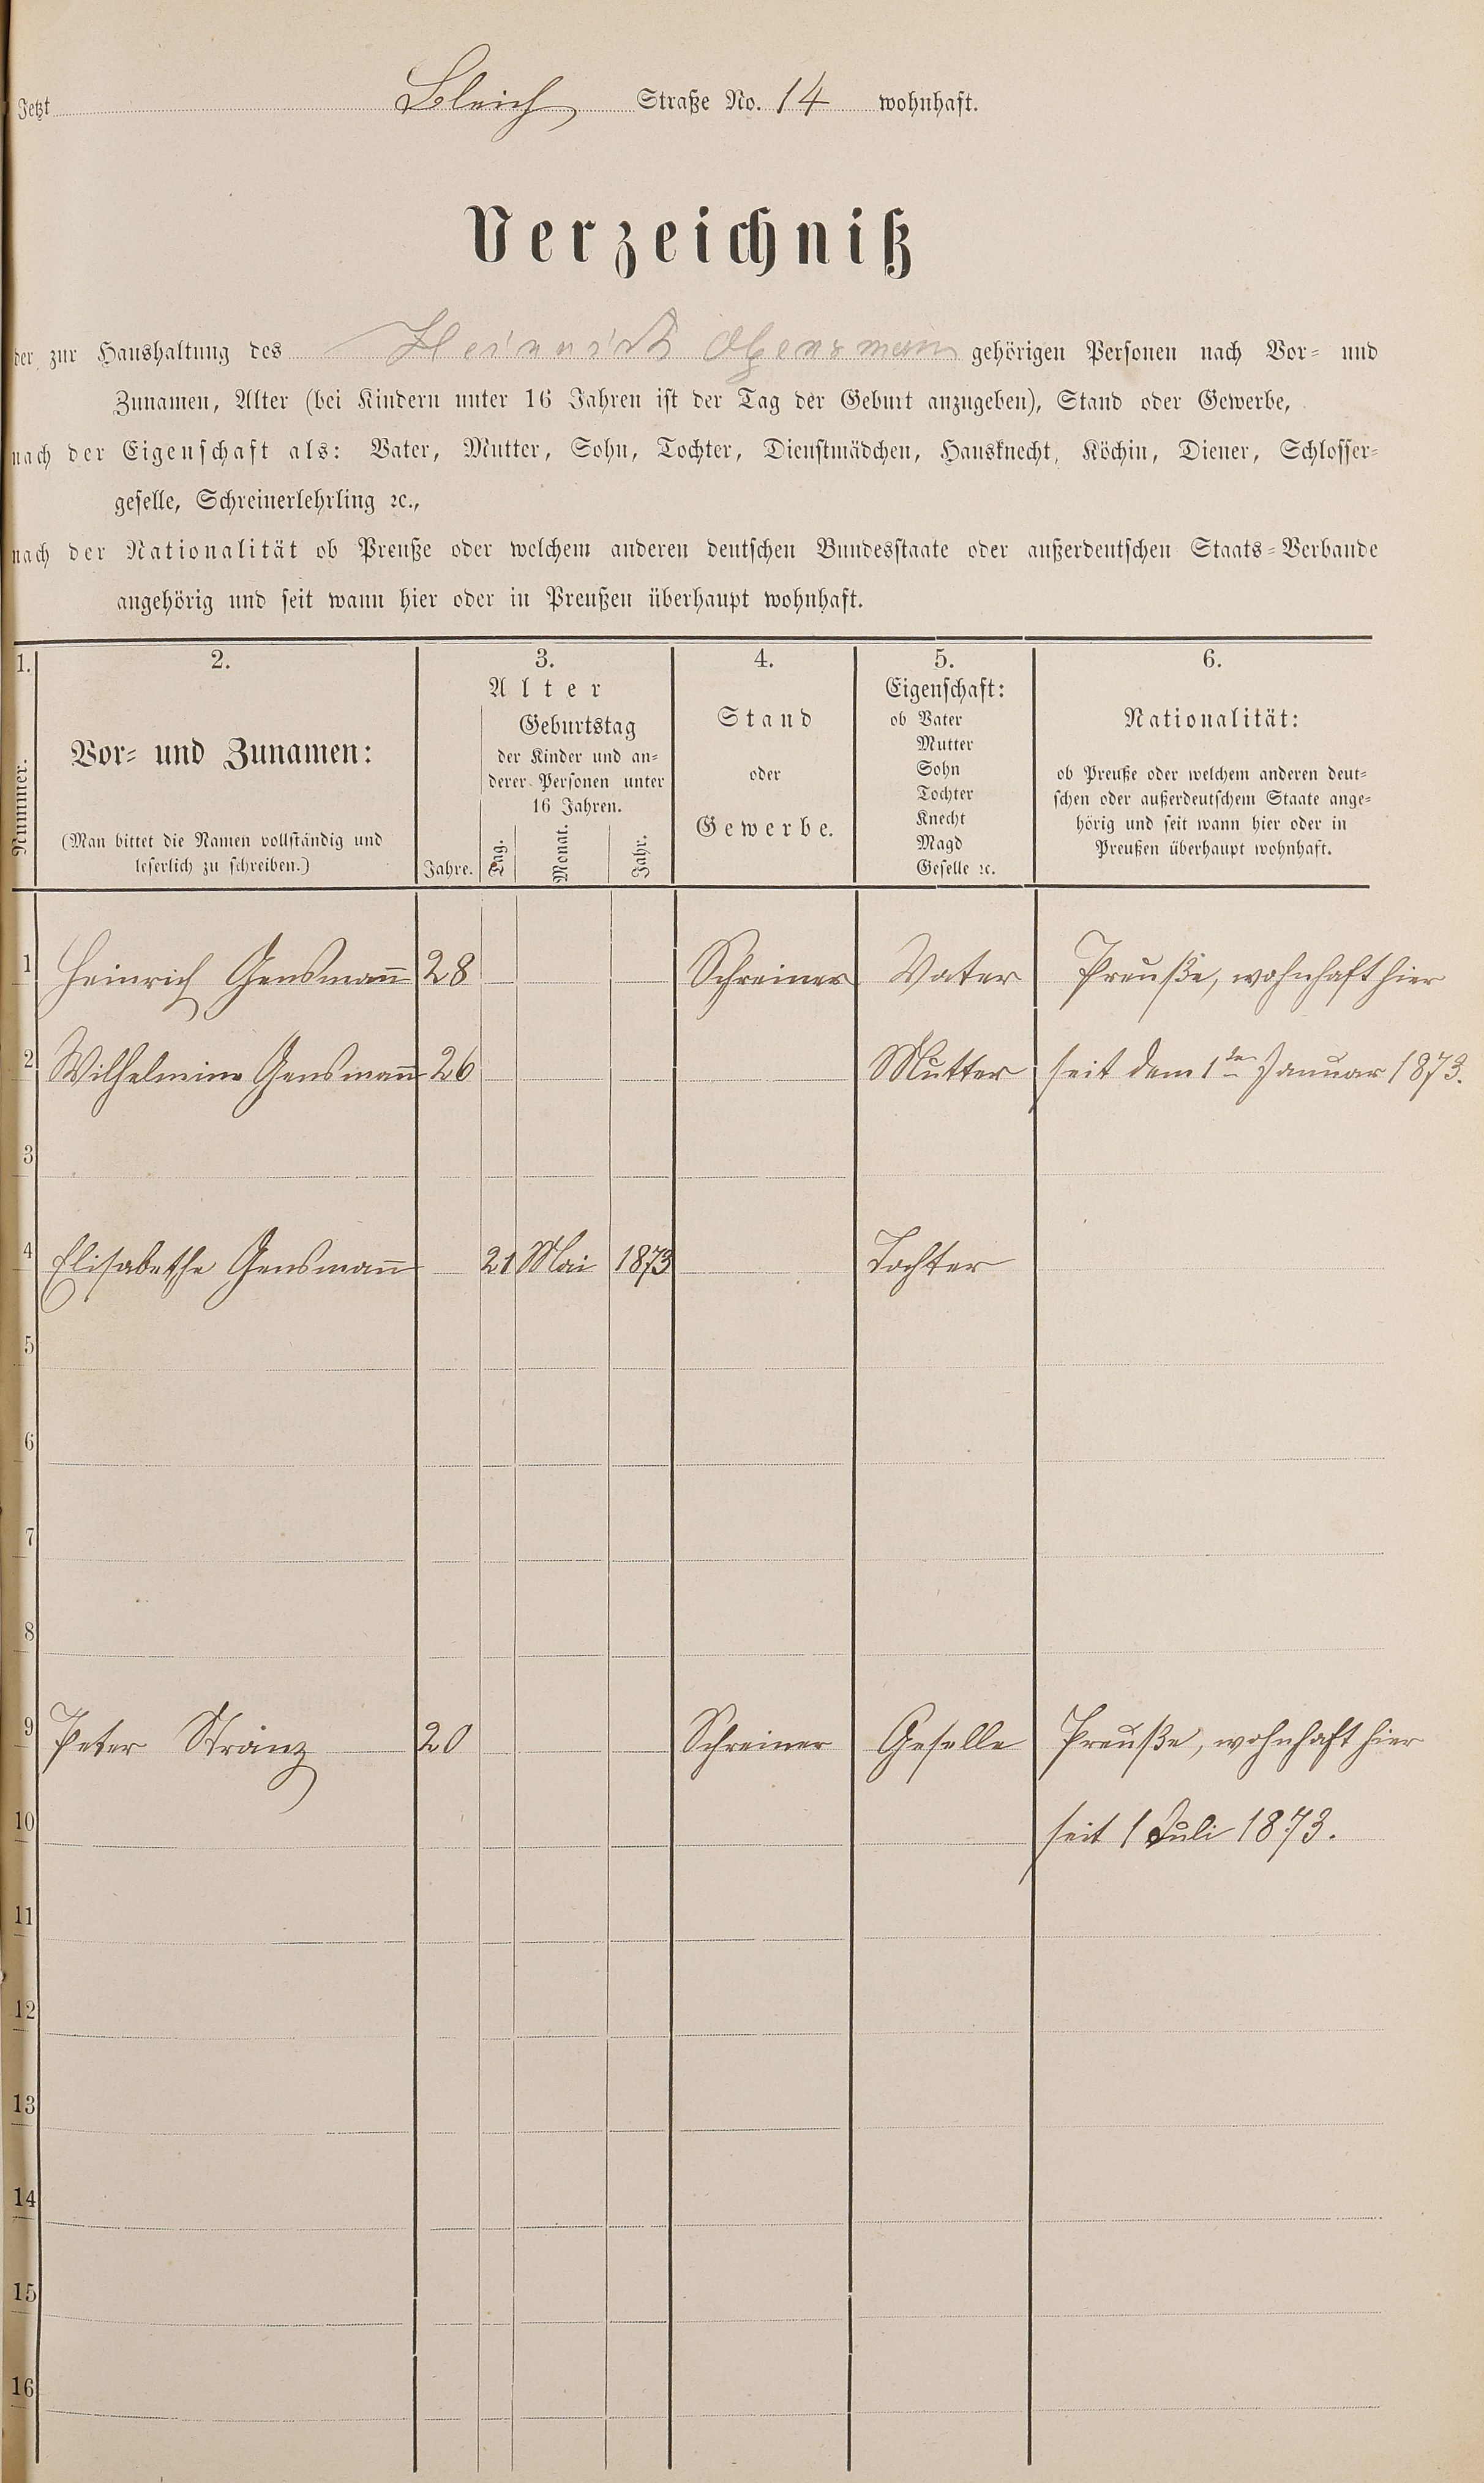 Jetzt Bleich Straße No. 14 wohnhaft.
Verzeichniß
der zur Haushaltung des Heinrich Gensmann gehörigen Personen nach Vor- und
Zunamen, Alter (bei Kindern unter 16 Jahren ist der Tag der Geburt anzugeben), Stand oder Gewerbe,
nach der Eigenschaft als: Vater, Mutter, Sohn, Tochter, Dienstmädchen, Hausknecht, Köchin, Diener, Schlosser-
geselle, Schreinerlehrling ꝛc.,
nach der Nationalität ob Preuße oder welchem anderen deutschen Bundesstaate oder außerdeutschen Staats-Verbande
angehörig und seit wann hier oder in Preußen überhaupt wohnhaft.
1. 2. 3. 4. 5. 6.
Nummer.
Vor- und Zunamen:
(Man bittet die Namen vollständig und
leserlich zu schreiben.)
Alter
Jahre.
Geburtstag
der Kinder und an-
derer Personen unter
16 Jahren.
Tag. Monat. Jahr.
Stand
oder
Gewerbe.
Eigenschaft:
ob Vater
Mutter
Sohn
Tochter
Knecht
Magd
Geselle ꝛc.
Nationalität:
ob Preuße oder welchem anderen deut-
schen oder außerdeutschem Staate ange-
hörig und seit wann hier oder in
Preußen überhaupt wohnhaft.
1 Heinrich Gensmann̄ 28 Schreiner Vater Preuße, wohnhaft hier
2 Wilhelmine Gensmann̄ 26 Mutter seit dem 1ten Januar 1873.
3
4 Elisabethe Gensmann̄ 21 Mai 1873 Tochter
5
6
7
8
9 Peter Stranz 20 Schreiner Geselle Preuße, wohnhaft hier
10 seit 1 Juli 1873.
11
12
13
14
15
16